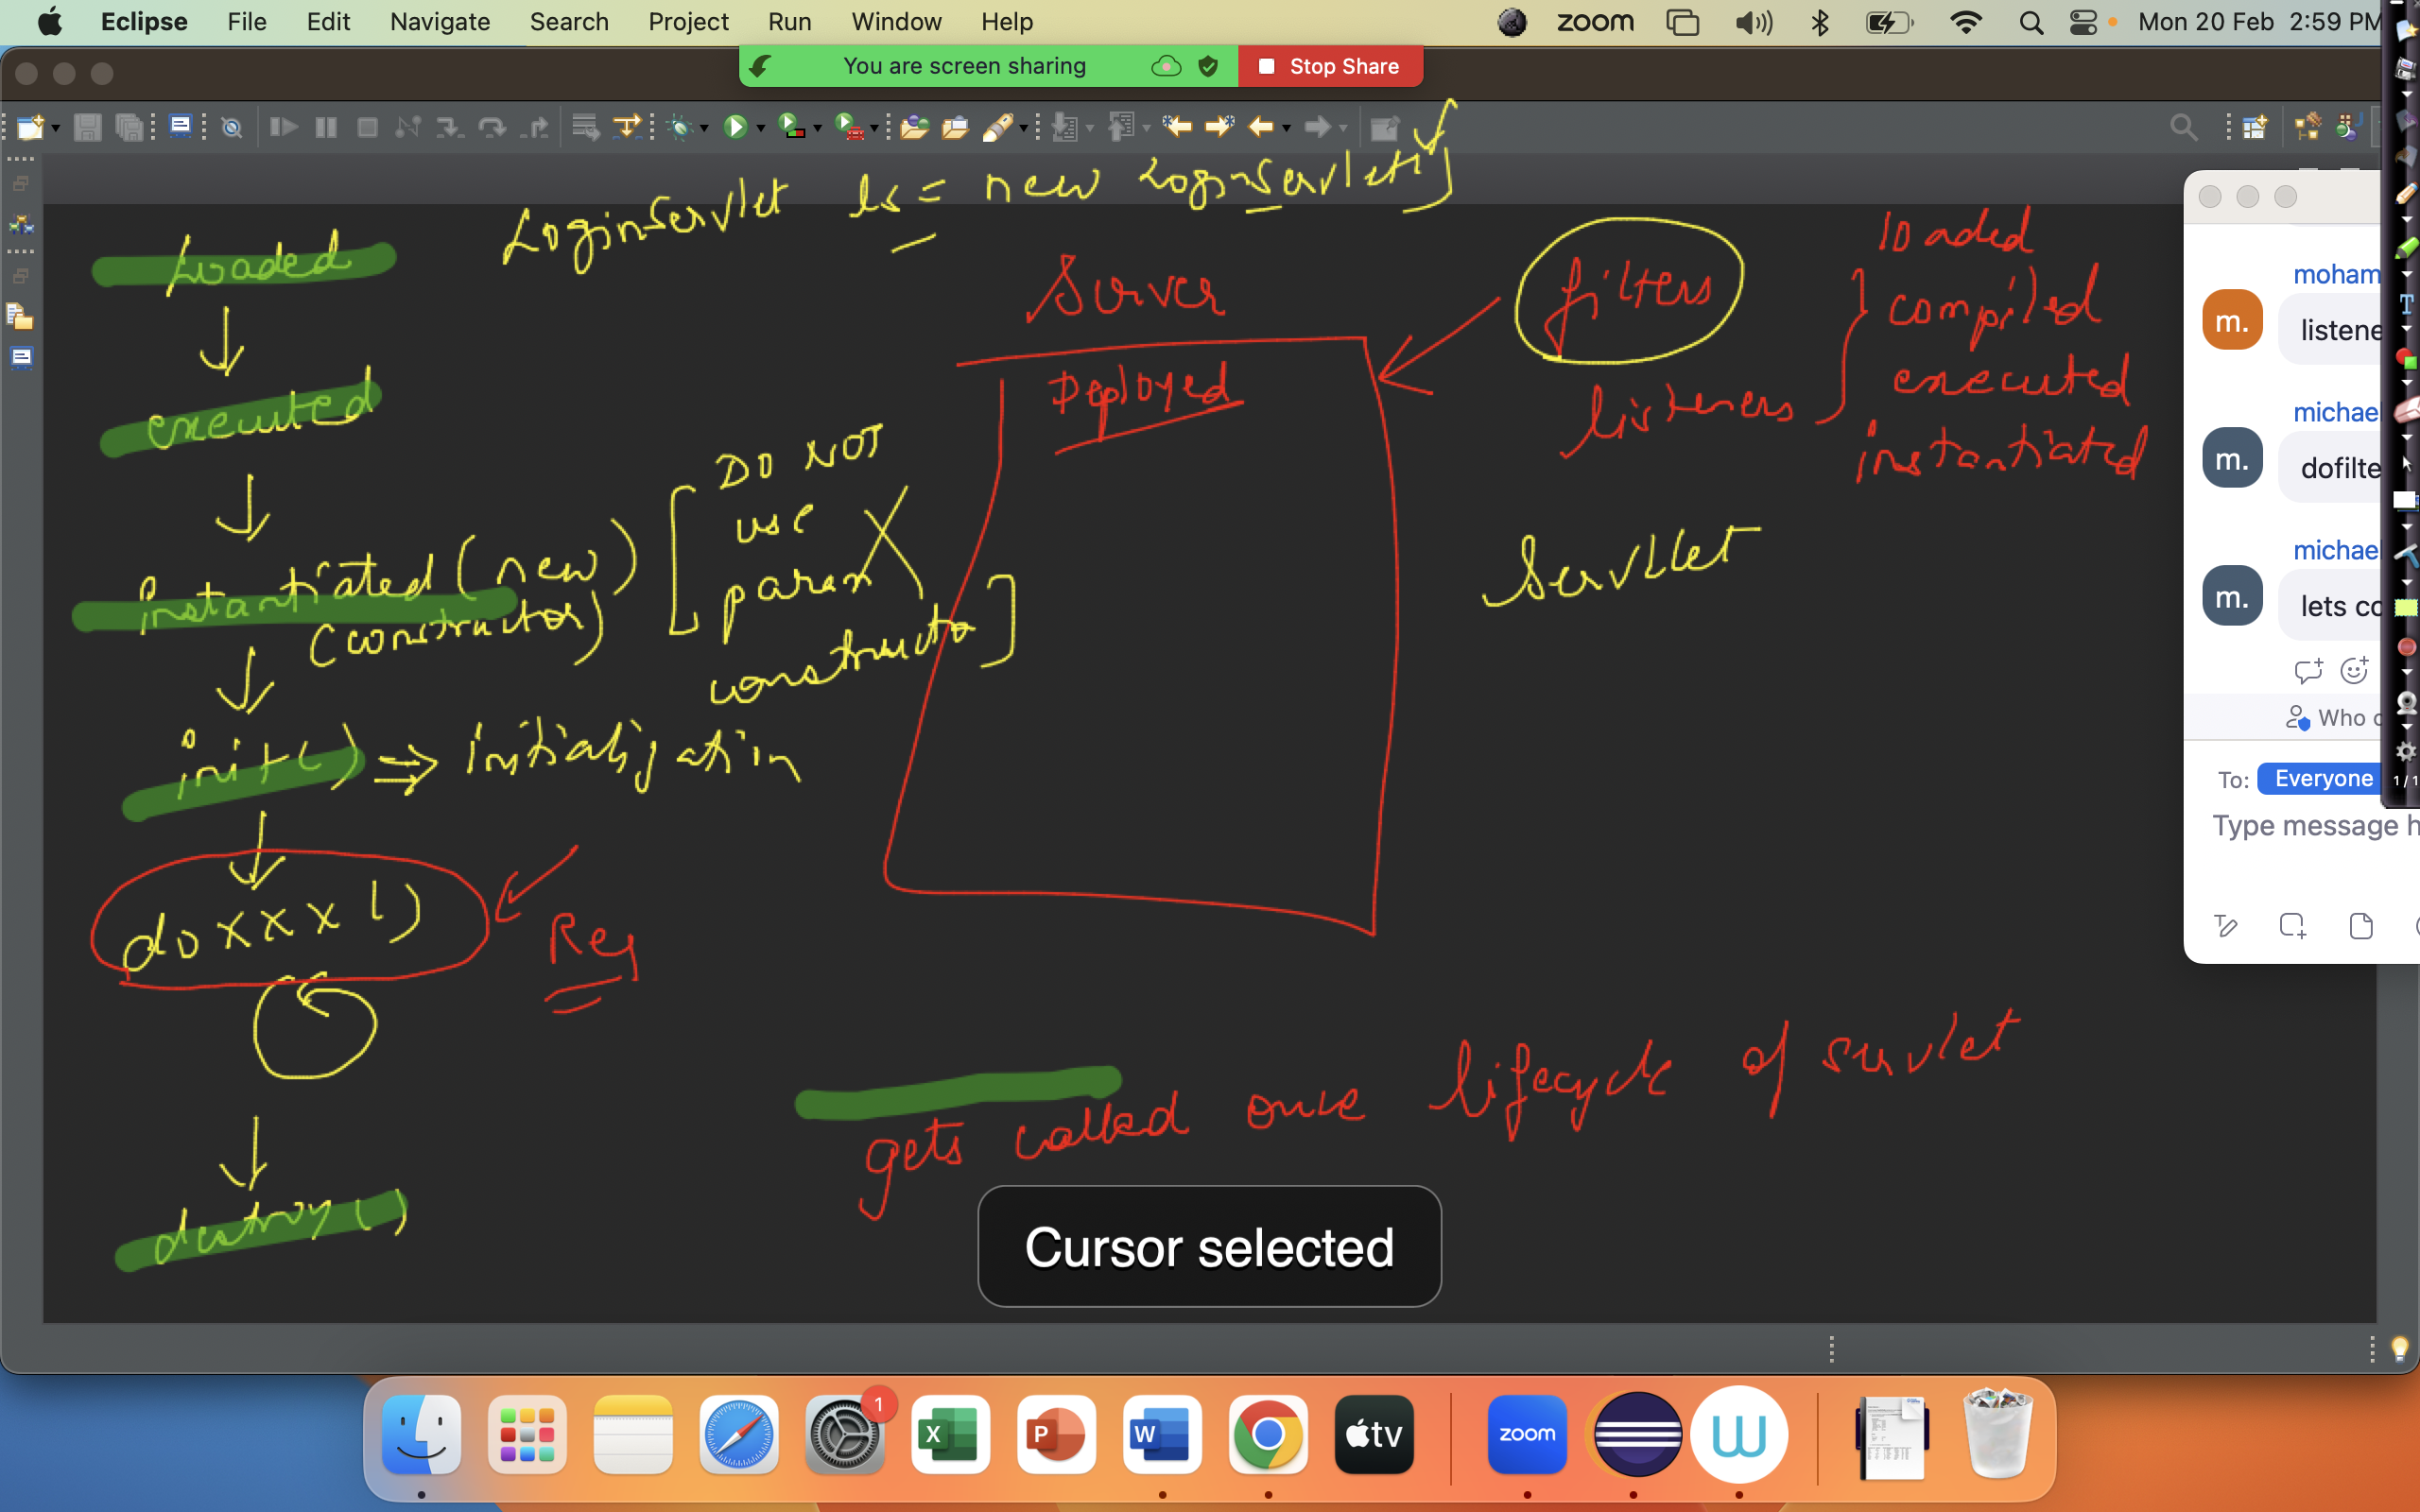 Eclipse File Edit Navigate Search Project Run Window Help
zoom Mon 20 Feb 2:59 PM
You are screen sharing Stop Share
LoginServlet ls = new LoginServlet()
Loaded
executed
instantiated (new)
(constructor)
DO NOT
use
param
constructor
init() => initialization
doxxx()
Req
destroy()
Server
Deployed
filters
listeners
loaded
compiled
executed
instantiated
Servlet
gets called once lifecycle of servlet
moham
m.
listene
michael
m.
dofilte
michael
m.
lets co
Who c
To: Everyone
1/1
Type message h
Cursor selected
1
X
P
W
tv
zoom
W